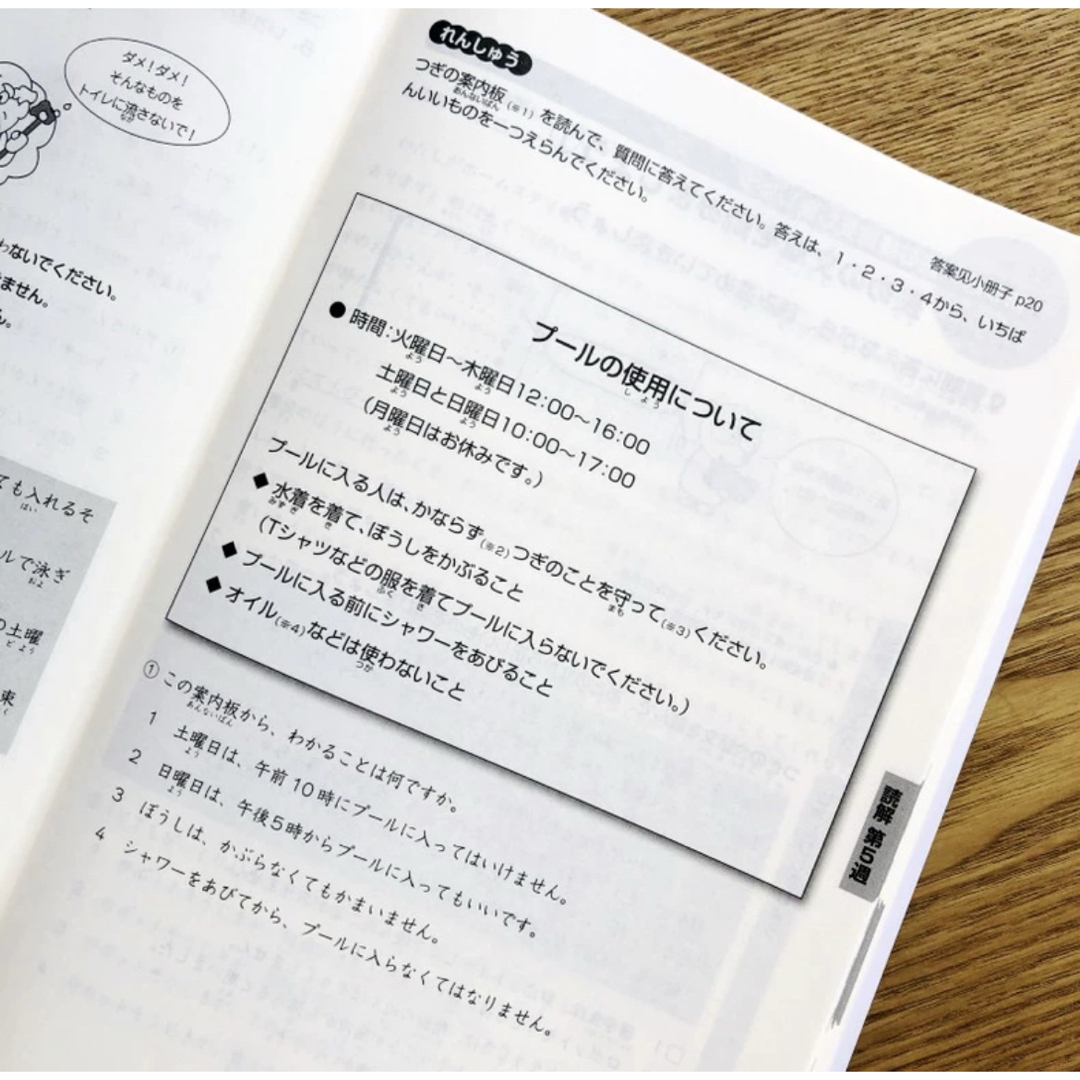 ダメ!ダメ!
そんなものを
トイレに流さないで!
なが
わないでください。
ません。
ん。
ても入れるそ
はい
ルで泳ぎ
およ
の土曜
どよう
東
く
れんしゅう
つぎの案内板(※1)を読んで、質問に答えてください。答えは、1・2・3・4から、いちば
あんないばん
んいいものを一つえらんでください。
答案见小册子 p20
プールの使用について
しよう
●時間:火曜日~木曜日12:00~16:00
よう よう
土曜日と日曜日10:00~17:00
よう よう
(月曜日はお休みです。)
よう
プールに入る人は、かならず(※2)つぎのことを守って(※3)ください。
まも
◆水着を着て、ぼうしをかぶること
みずぎ き
(Tシャツなどの服を着てプールに入らないでください。)
ふく き
◆プールに入る前にシャワーをあびること
◆オイル(※4)などは使わないこと
つか
①この案内板から、わかることは何ですか。
あんないばん
1 土曜日は、午前10時にプールに入ってはいけません。
よう
2 日曜日は、午後5時からプールに入ってもいいです。
よう
3 ぼうしは、かぶらなくてもかまいません。
4 シャワーをあびてから、プールに入らなくてはなりません。
読解 第5週